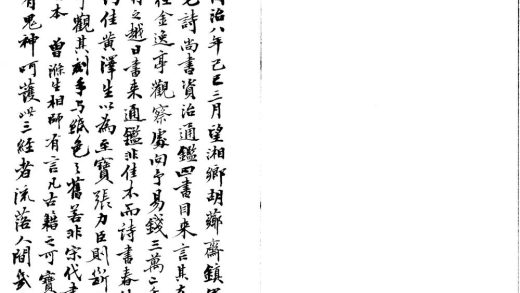 治八年己巳三月望湘鄉胡薌齋鎮
詩尚書資治通鑑四書目來言其
金逸亭觀察處向予易錢三萬
之越日書來通鑑非佳本而詩書春
佳黃澤生以為至寶張力臣則斷
觀其刻手与紙色之舊善非宋代
本 曾滌生相師有言凡古籍之可寶
有鬼神呵護此三經者流落人間